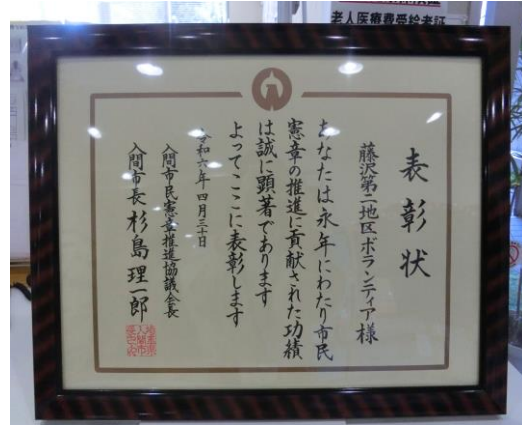 老人医療費受給者証
表彰状
藤沢第二地区ボランティア様
あなたは永年にわたり市民
憲章の推進に貢献された功績
は誠に顕著であります
よってここに表彰します
令和六年四月三十日
入間市民憲章推進協議会長
入間市長 杉島理一郎